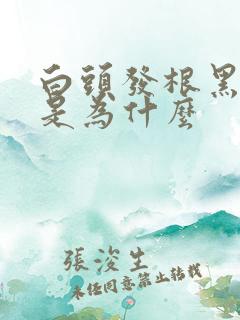 白頭發根黑
是為什麼
張浚生
未經同意禁止轉載